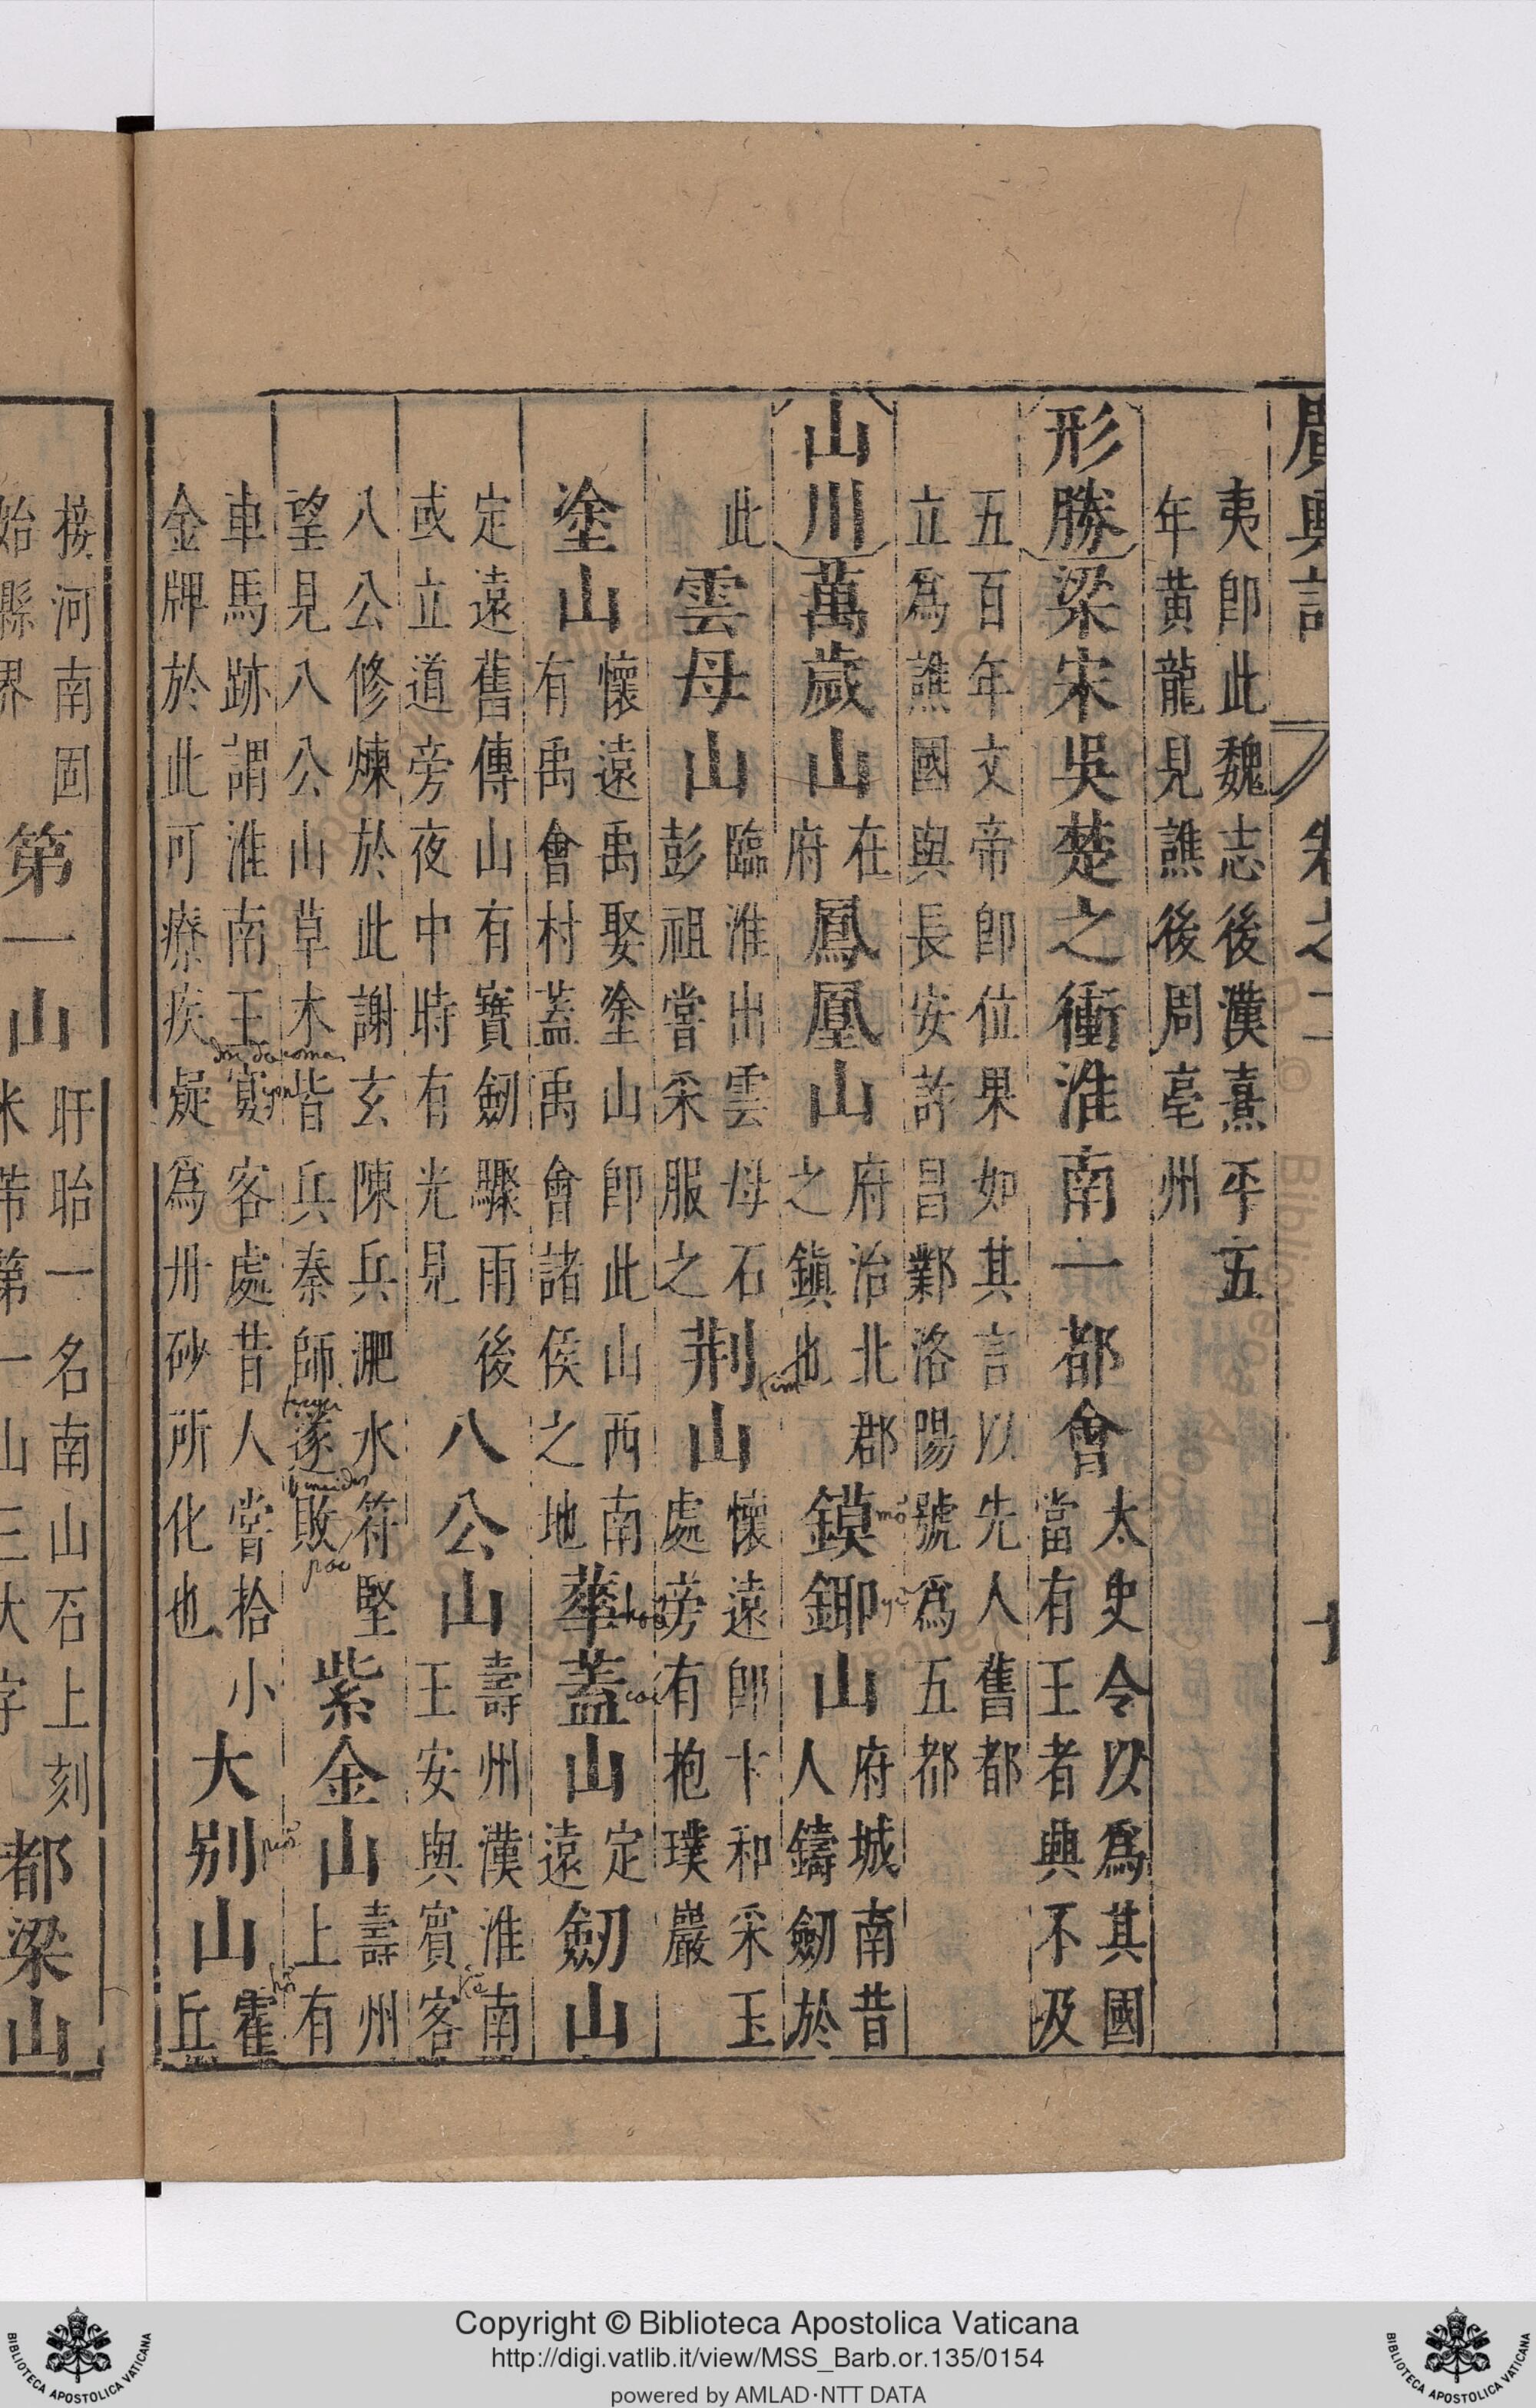 廣輿記 卷之二 十
夷卽此魏志後漢熹平五
年黃龍見譙後周亳州
形勝 梁宋吳楚之衝淮南一都會 太史令以爲其國
當有王者興不及
五百年文帝卽位果如其言以先人舊都
立爲譙國與長安許昌鄴洛陽號爲五都
山川 萬歲山 在
府 鳳凰山 府治北郡
之鎮也 鏌鎁山 府城南昔
人鑄劒於
mo
此 雲母山 臨淮出雲母石
彭祖嘗采服之 荆山 懷遠卽卞和采玉
處旁有抱璞巖
kim
塗山 懷遠禹娶塗山卽此山西南
有禹會村蓋禹會諸侯之地 華蓋山 定
遠 劒山
hoa
cai
定遠舊傳山有寶劒驟雨後
或立道旁夜中時有光見 八公山 壽州漢淮南
王安與賓客
八公修煉於此謝玄陳兵淝水符堅
望見八公山草木皆兵秦師遂敗 紫金山 壽州
上有
車馬跡謂淮南王宴客處昔人嘗拾小
金牌於此可療疾疑爲丹砂所化也 大别山 霍
丘
接河南固
始縣界 第一山 盱眙一名南山石上刻
米芾第一山三大字 都梁山
Copyright © Biblioteca Apostolica Vaticana
http://digi.vatlib.it/view/MSS_Barb.or.135/0154
powered by AMLAD·NTT DATA
BIBLIOTECA APOSTOLICA VATICANA
BIBLIOTECA APOSTOLICA VATICANA